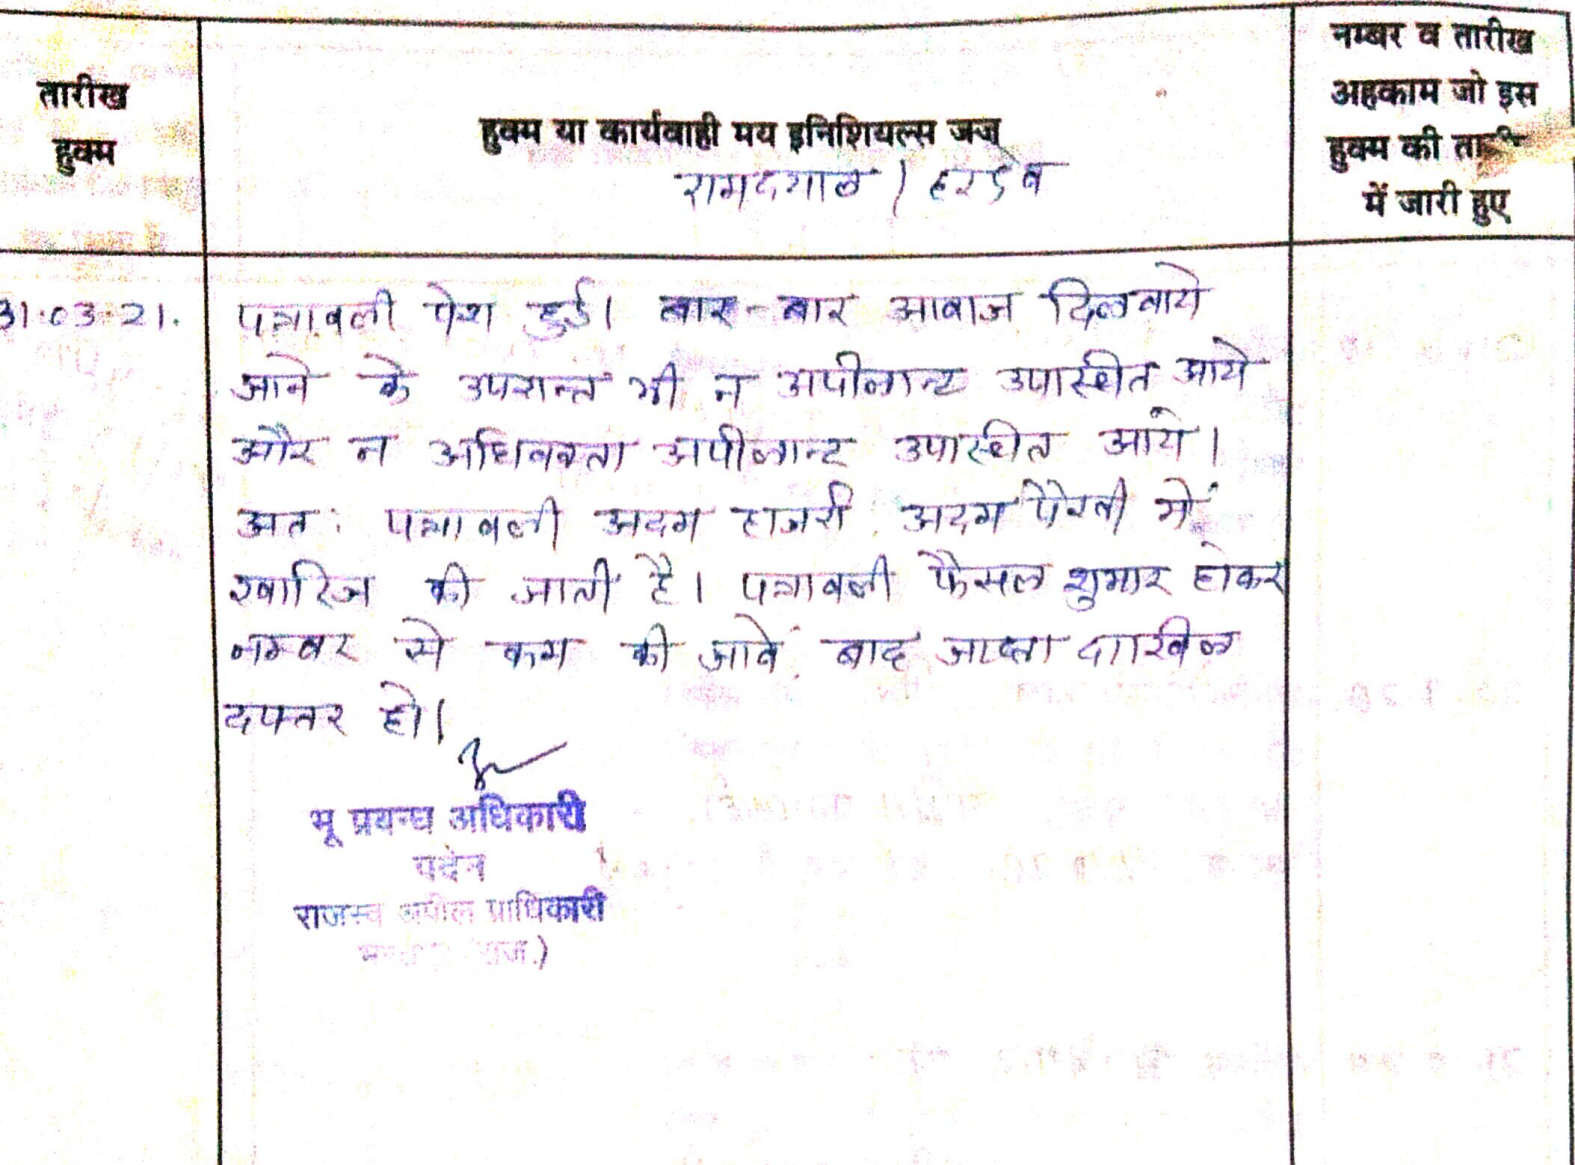 तारीख
हुक्म
हुक्म या कार्यवाही मय इनिशियल्स जज
रामदयाल / हरदेव
नम्बर व तारीख
अहकाम जो इस
हुक्म की
में जारी हुए
31.03.21.
पत्रावली पेश हुई। बार-बार आवाज दिलवाये
जाने के उपरान्त भी न अपीलान्ट उपास्थित आये
और न अधिवक्ता अपीलान्ट उपास्थित आये।
अतः पत्रावली अदम हाजरी अदम पैरवी में
खारिज की जाती है। पत्रावली फैसल शुमार होकर
नम्बर से कम की जावें, बाद जाप्ता दाखिल
दफ्तर हो।
भू प्रबन्ध अधिकारी
पदेन
राजस्व अपील प्राधिकारी
राज.)